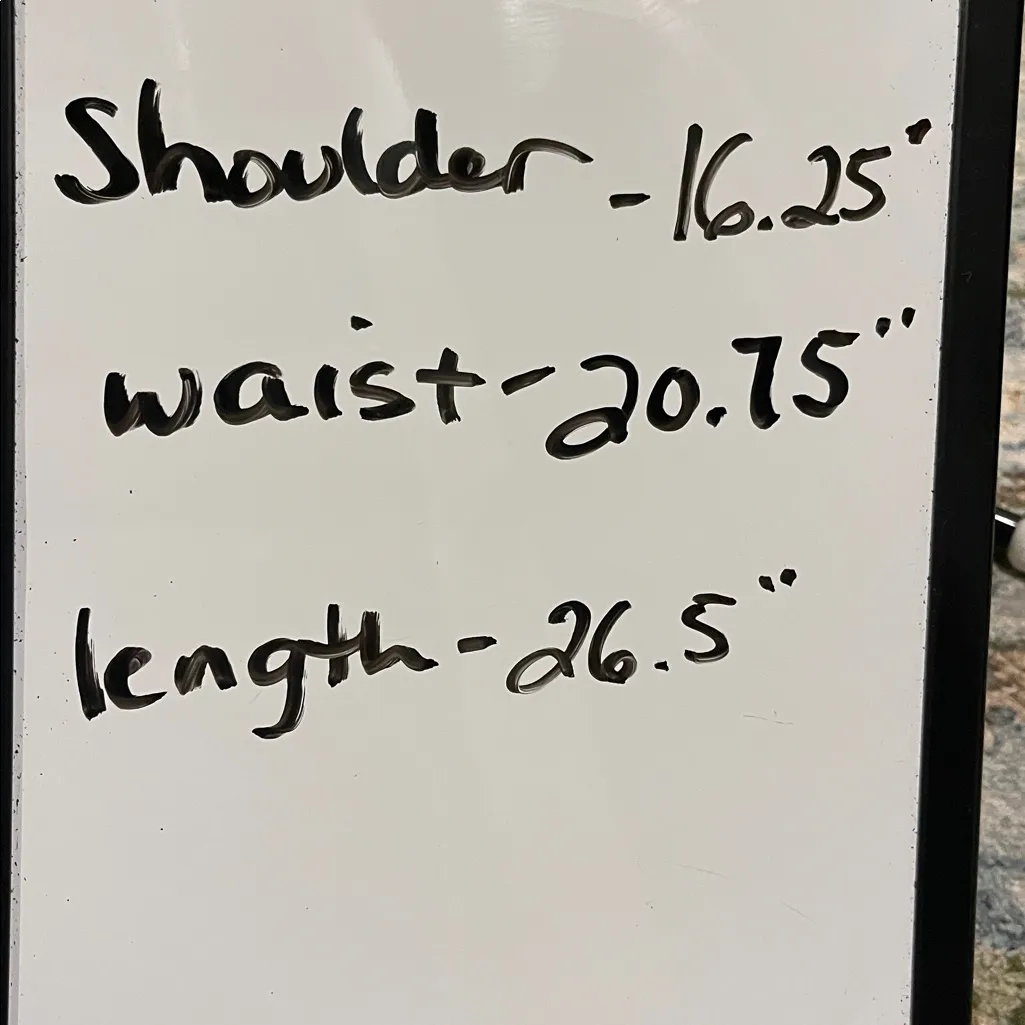 Shoulder - 16.25"
waist - 20.75"
length - 26.5"